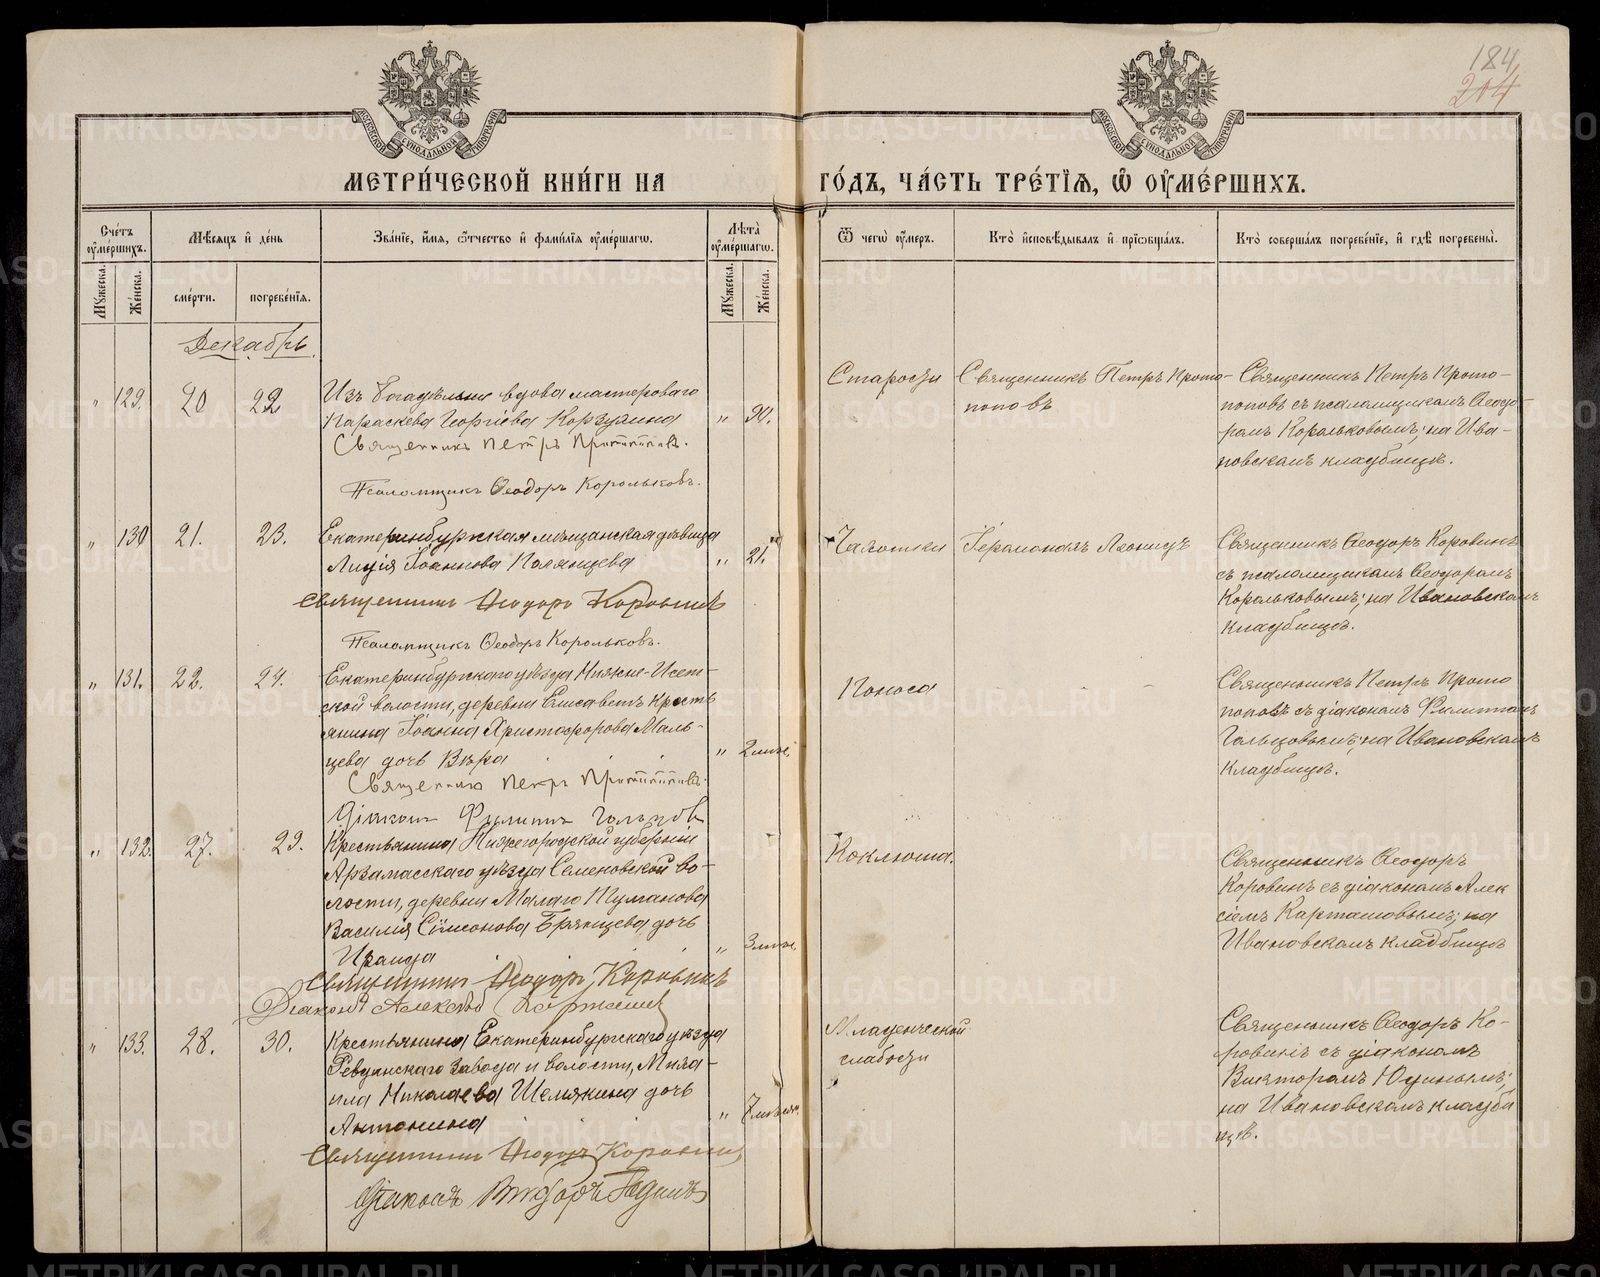 184
204
МЕТРИ́ЧЕСКОЙ КНИ́ГИ НА
ГО́ДЪ, ЧА́СТЬ ТРЕ́ТІѦ, Ѿ ОУ҆МЕ́РШИХЪ.
Сче́тъ оу҆ме́ршихъ.
Мѣ́сяцъ и҆ де́нь
Зва́нїе, и҆́мѧ, ѻ҆́тчество и҆ фами́лїѧ оу҆ме́ршагѡ.
Лѣ́та оу҆ме́ршагѡ.
Ѿ чегѡ̀ оу҆́меръ.
Кто̀ и҆сповѣ́дывалъ и҆ прїѡбща́лъ.
Кто̀ соверша́лъ погребе́нїе, и҆ гдѣ̀ погребены̀.
Мꙋ́жеска.
Же́нска.
сме́рти.
погребе́нїѧ.
Мꙋ́жеска.
Же́нска.
Декабрь.
" 129. 20 22
Изъ богадѣльни вдова мастероваго
Параскева Георгіева Корзухина
" 90.
Священникъ Петръ Протопоповъ.
Псаломщикъ Ѳеодоръ Корольковъ.
Старости
Священникъ Петръ Прото-
поповъ
Священникъ Петръ Прото-
поповъ съ псаломщикомъ Ѳеодо-
ромъ Корольковымъ; на Ива-
новскомъ кладбищѣ.
" 130 21. 23.
Екатеринбургская мѣщанская дѣвица
Лидія Іоаннова Полянцева
" 21.
Священникъ Ѳеодоръ Коровинъ
Псаломщикъ Ѳеодоръ Корольковъ.
Чахотки
Іеромонахъ Леонидъ
Священникъ Ѳеодоръ Коровинъ
съ псаломщикомъ Ѳеодоромъ
Корольковымъ; на Ивановскомъ
кладбищѣ.
" 131. 22. 24.
Екатеринбургскаго уѣзда Нижне-Исет-
ской волости, деревни Елисаветъ кресть
янина Іоанна Христофорова Маль-
цева дочь Вѣра
" 2 мѣс.
Священникъ Петръ Протопоповъ.
Діаконъ Филиппъ Гольцовъ
Поноса
Священникъ Петръ Прото
поповъ съ діакономъ Филиппомъ
Гольцовымъ; на Ивановскомъ
кладбищѣ.
" 132. 27. 29.
Крестьянина Нижегородской губерніи
Арзамасскаго уѣзда Семеновской во-
лости, деревни Малаго Туманова
Василія Сѵмеонова Брянцева дочь
Ираида
" 3 мѣс.
Священникъ Ѳеодоръ Коровинъ
Діаконъ Алексѣй Карташевъ
Коклюша.
Священникъ Ѳеодоръ
Коровинъ съ діакономъ Алек
сіемъ Карташовымъ; на
Ивановскомъ кладбищѣ
" 133. 28. 30.
Крестьянина Екатеринбургскаго уѣзда
Ревдинскаго завода и волости, Миха-
ила Николаева Шемякина дочь
Антонина
" 7 мѣсяц.
Священникъ Ѳеодоръ Коровинъ
Діаконъ Викторъ Юдинъ
Младенческой
слабости
Священникъ Ѳеодоръ Ко-
ровинъ съ діакономъ
Викторомъ Юдинымъ;
на Ивановскомъ кладби
щѣ.
METRIKI.GASO-URAL.RU